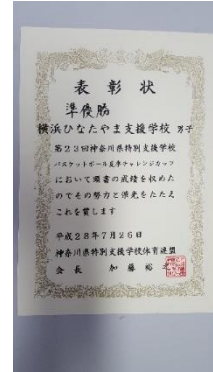 表彰状
準優勝
横浜ひなたやま支援学校 男子
第23回神奈川県特別支援学校
バスケットボール夏季チャレンジカップ
において頭書の成績を収めた
のでその努力と栄光をたたえ
これを賞します
平成28年7月26日
神奈川県特別支援学校体育連盟
会長 加藤裕